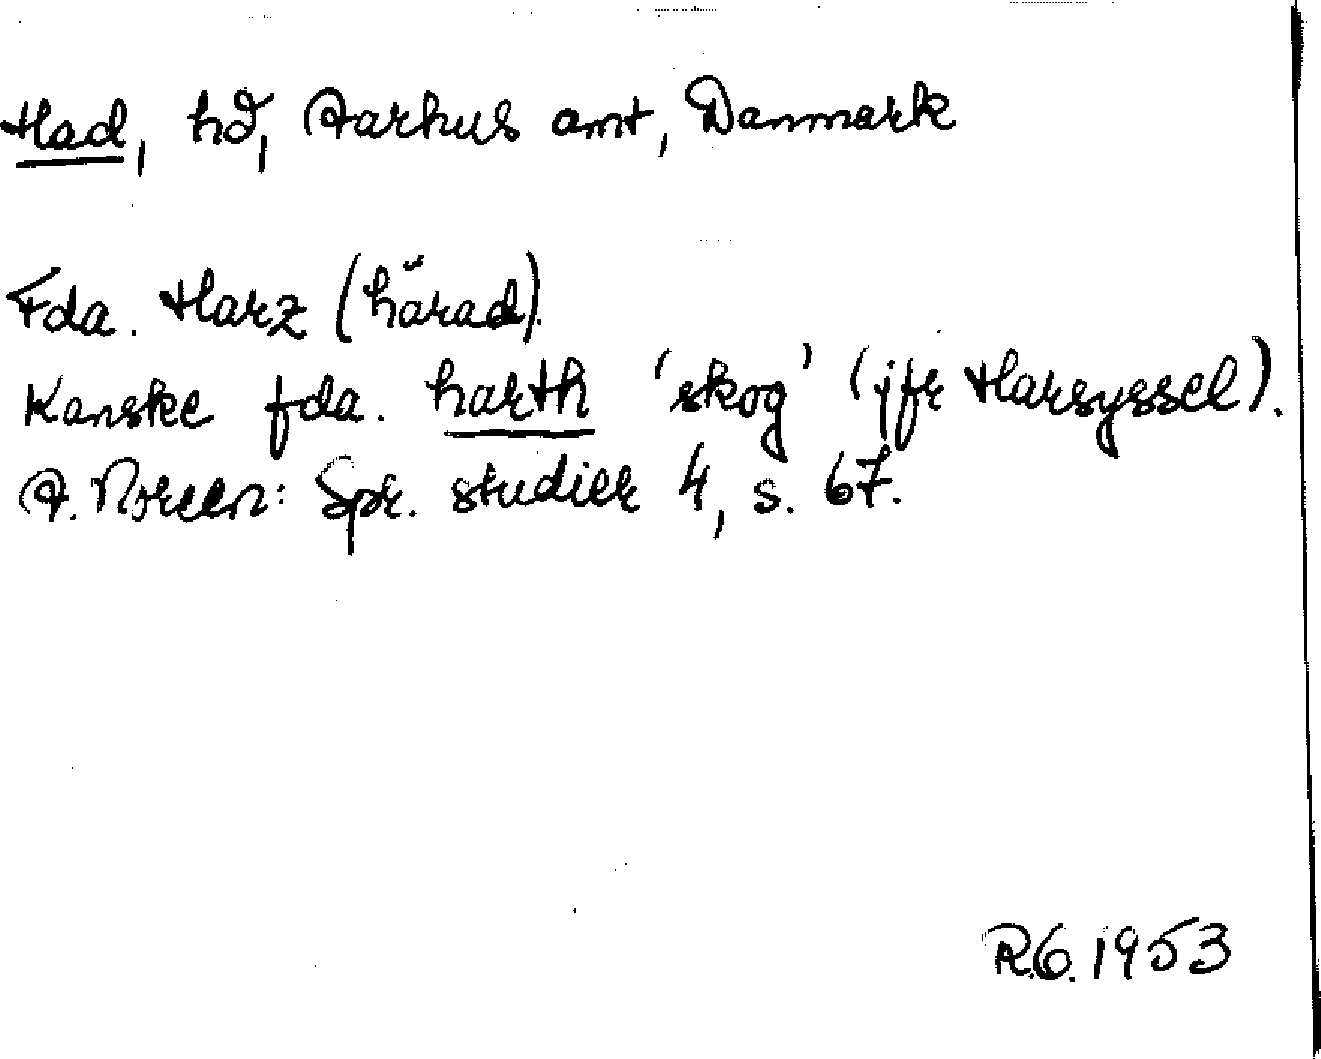 Had, hd, Aarhus amt, Danmark
Fda. Harz (härad).
Kanske fda. harth 'skog' (jfr Harsyssel).
A. Noreen: Spr. studier 4, s. 67.
R.G. 1953